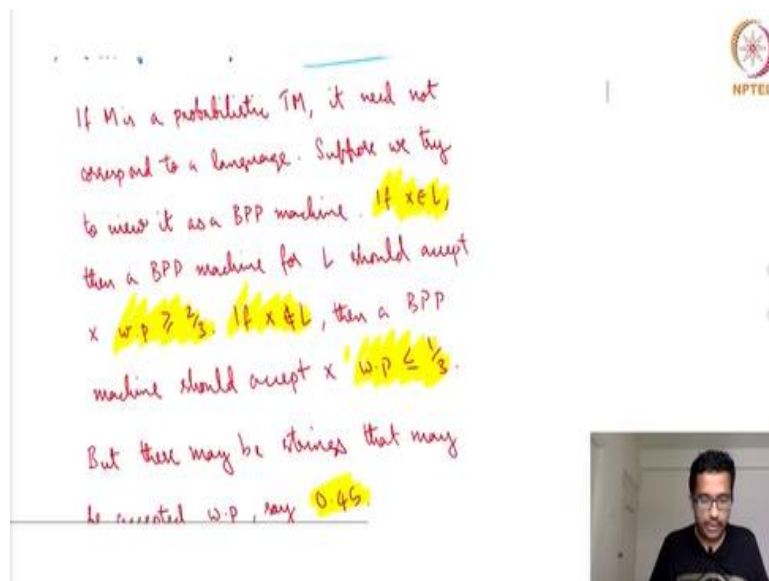 If M is a probabilistic TM, it need not
correspond to a language. Suppose we try
to view it as a BPP machine. If x ∈ L,
then a BPP machine for L should accept
x w.p ≥ 2/3. If x ∉ L, then a BPP
machine should accept x w.p ≤ 1/3.
But there may be strings that may
be accepted w.p, say 0.45.
NPTEL